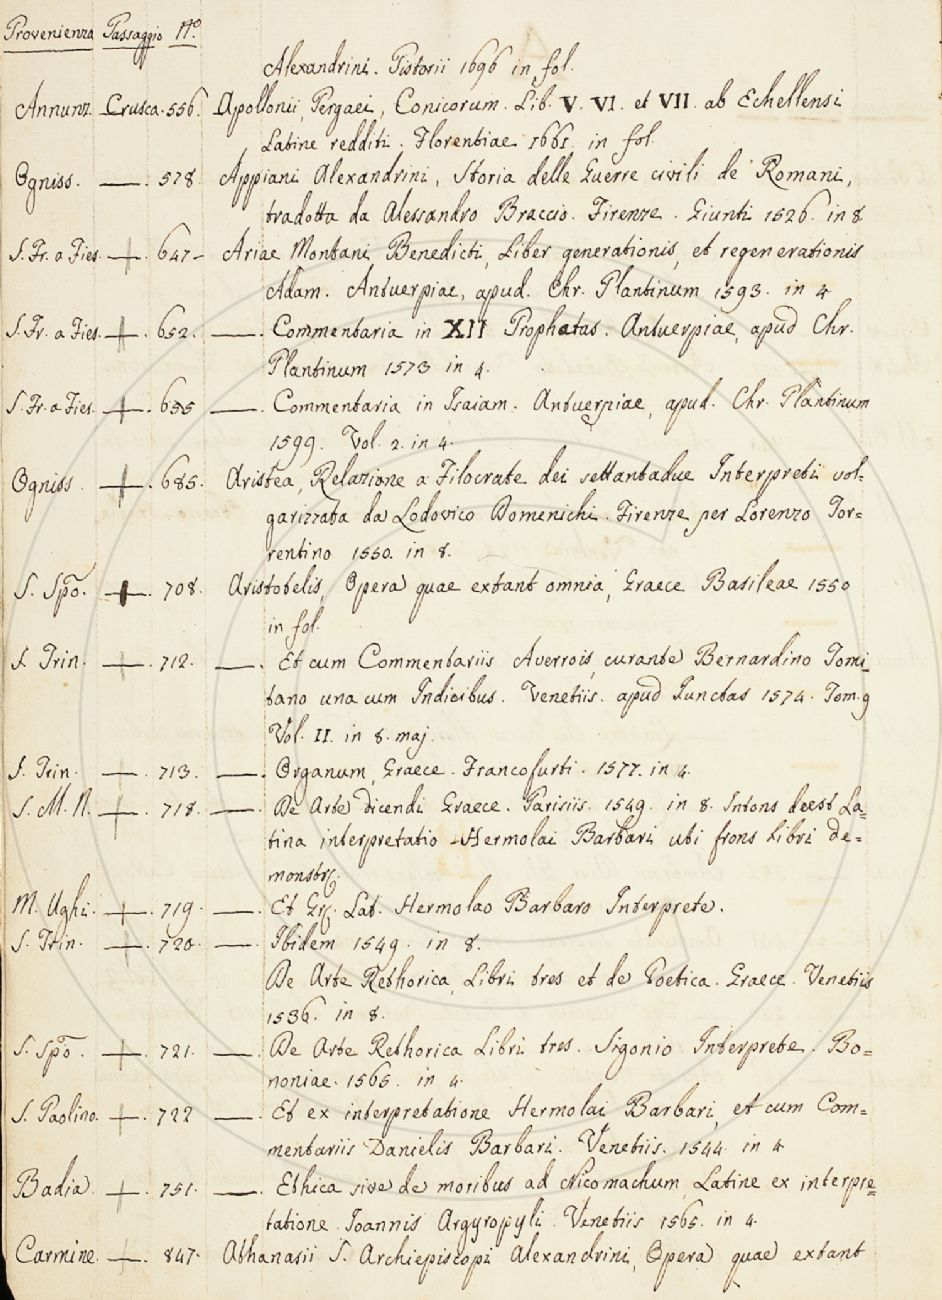 Provenienza Passaggio N.º
Alexandrini. Pistorii 1696 in fol.
Annunz. Crusca. 556. Apollonii Pergaei, Conicorum. Lib. V. VI. et VII. ab Echellensi
Latine redditi. Florentiae 1661. in fol.
Ogniss. —. 578. Appiani Alexandrini, Storia delle Guerre civili de' Romani,
tradotta da Alessandro Braccio. Firenze. Giunti 1526. in 8.
S. Fr. a Fies. —. 647 - Ariae Montani Benedicti, Liber generationis, et regenerationis
Adam. Antuerpiae, apud. Chr. Plantinum 1593. in 4
S. Fr. a Fies. —. 652. —. Commentaria in XII Prophetas. Antuerpiae, apud Chr.
Plantinum 1573 in 4.
S. Fr. a Fies. —. 655 —. Commentaria in Isaiam. Antuerpiae, apud. Chr. Plantinum
1599. Vol. 2. in 4.
Ogniss. —. 685. Aristea, Relazione a Filocrate dei settantadue Interpreti vol=
garizzata da Lodovico Domenichi. Firenze per Lorenzo Tor=
rentino 1550. in 8.
S. Spõ. —. 708. Aristotelis, Opera quae extant omnia, Graece Basileae 1550
in fol.
S. Trin. —. 712. —. Et cum Commentariis Averrois, curante Bernardino Tomi_
tano una cum Indicibus. Venetiis. apud Junctas 1574. Tom. 9
Vol. II. in 8. maj.
S. Trin. —. 713. —. Organum, Graece. Francofurti. 1577. in 4.
S. M. N. —. 718. —. De Arte dicendi Graece. Parisiis. 1549. in 8. Intons deest La=
tina interpretatio Hermolai Barbari uti frons Libri de=
monstr.
M. Ughi. —. 719. —. Et Gr. Lat. Hermolao Barbaro Interprete.
S. Trin. —. 720. —. Ibidem 1549. in 8.
De Arte Rethorica, Libri tres et de Poetica. Graece. Venetiis
1536. in 8.
S. Spõ. —. 721. —. De Arte Rethorica Libri tres. Sigonio Interprete. Bo=
noniae. 1565. in 4.
S. Paolino. —. 722 —. Et ex interpretatione Hermolai Barbari, et cum Com=
mentariis Danielis Barbari. Venetiis. 1544. in 4
Badia. —. 751. —. Ethica sive de moribus ad Nicomachum, Latine ex interpre=
tatione Joannis Argyropyli. Venetiis 1565. in 4.
Carmine. —. 847. Athanasii S. Archiepiscopi Alexandrini, Opera quae extant